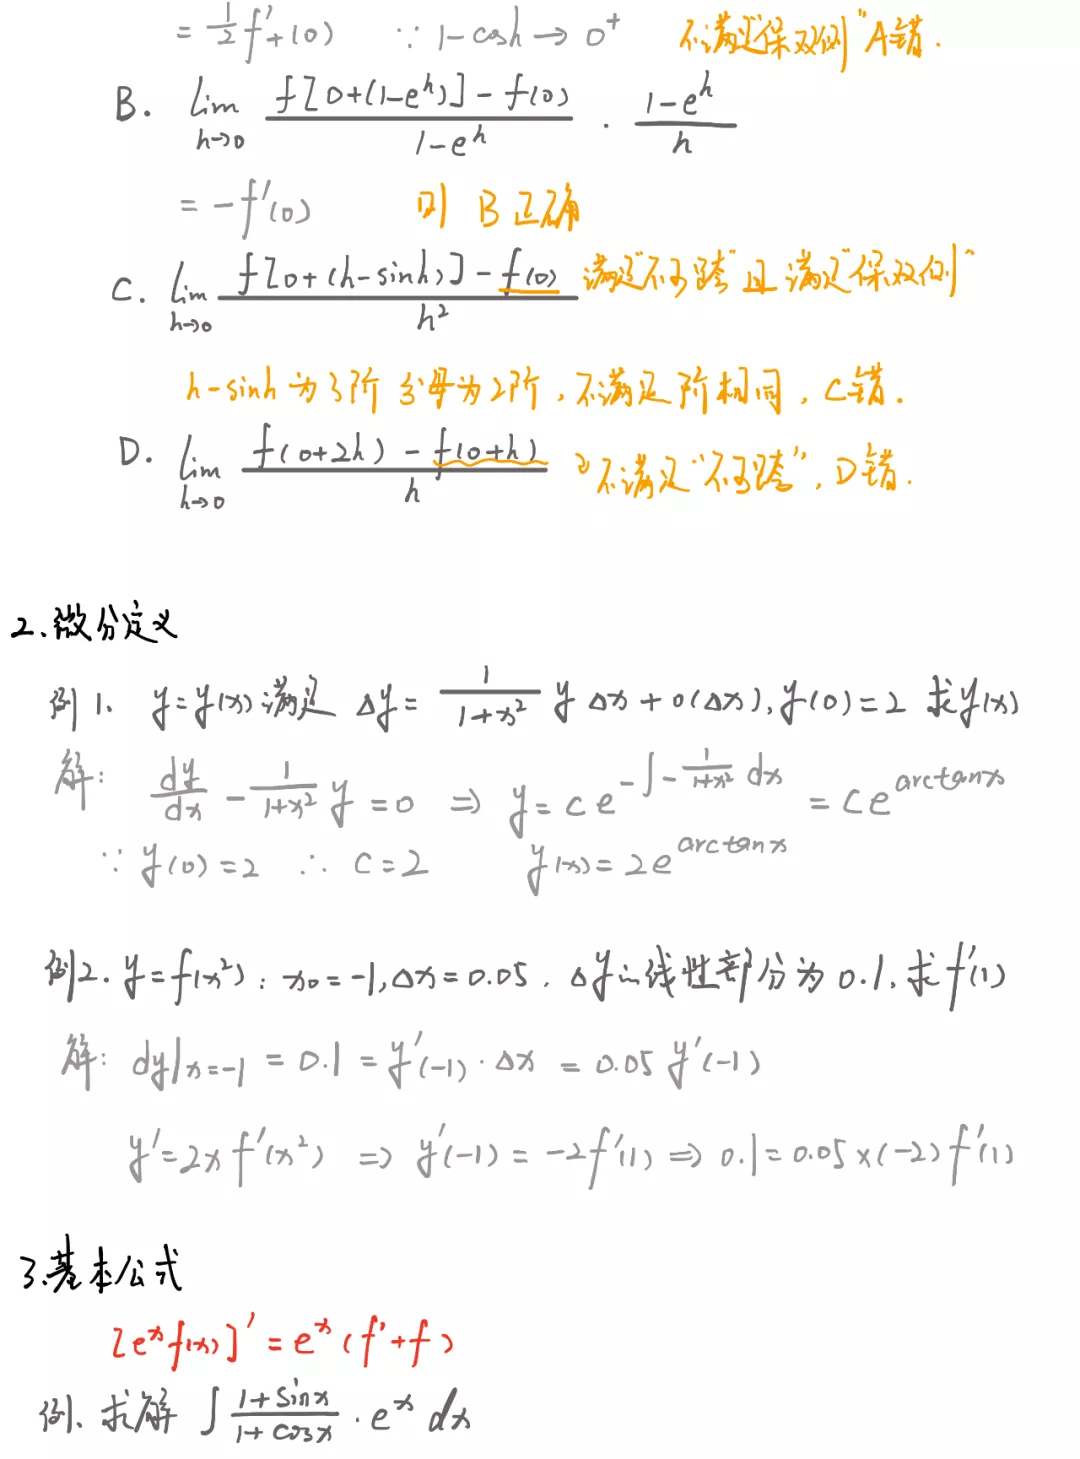 = 1/2 f'₊(0) ∵ 1-cosh → 0⁺ 不满足"保双侧" A错.
B. lim_{h→0} f[0+(1-eʰ)] - f(0) / 1-eʰ · 1-eʰ / h
= -f'(0) 则 B正确
C. lim_{h→0} f[0+(h-sinh)] - f(0) / h² 满足"不可跨"且满足"保双侧"
h-sinh为3阶 分母为2阶, 不满足阶相同, C错.
D. lim_{h→0} f(0+2h) - f(0+h) / h 不满足"不可跨", D错.
2.微分定义
例1. y=y(x)满足 Δy= 1/(1+x²) y Δx + o(Δx), y(0)=2 求y(x)
解: dy/dx - 1/(1+x²) y = 0 ⇒ y = ce^{-∫-1/(1+x²) dx} = ce^{arctanx}
∵ y(0)=2 ∴ c=2 y(x)=2e^{arctanx}
例2. y=f(x²): x₀=-1, Δx=0.05. Δy的线性部分为0.1. 求f'(1)
解: dy|x=-1 = 0.1 = y'(-1)·Δx = 0.05 y'(-1)
y'=2x f'(x²) ⇒ y'(-1) = -2f'(1) ⇒ 0.1=0.05×(-2)f'(1)
3.基本公式
[eˣf(x)]' = eˣ(f'+f)
例. 求解 ∫ (1+sinx)/(1+cosx) · eˣ dx